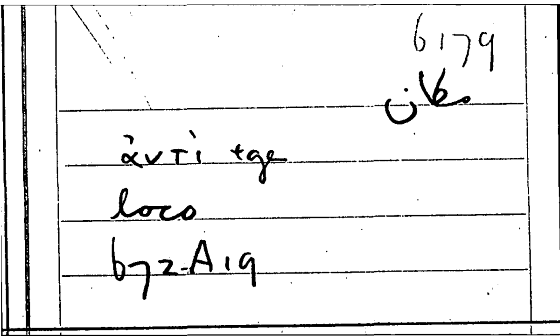 6179
مكان
ἀντὶ +ge
loco
b72-A19